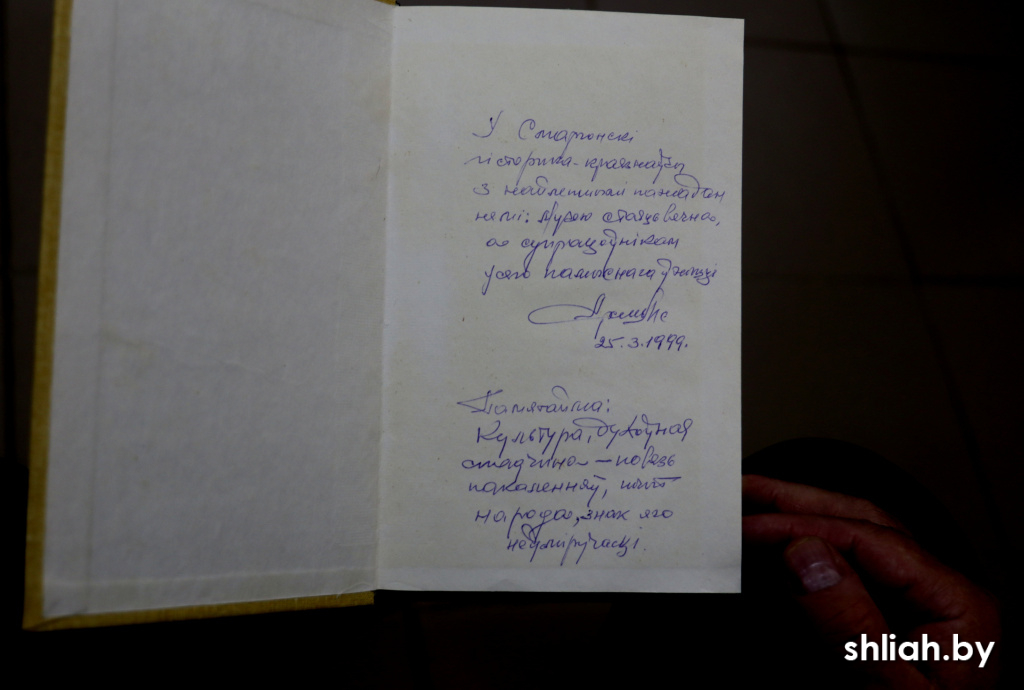 У Смаргонскі
гісторыка-краязнаўчы
з найлепшымі пажадан
нямі: Музею стаяць вечна,
а супрацоўнікам
усяго памыснага ў жыцці
25.3.1999.
Памятайма:
Культура, духоўная
спадчына — повязь
пакаленняў, 
народа, знак яго
неўміручасці.
shliah.by